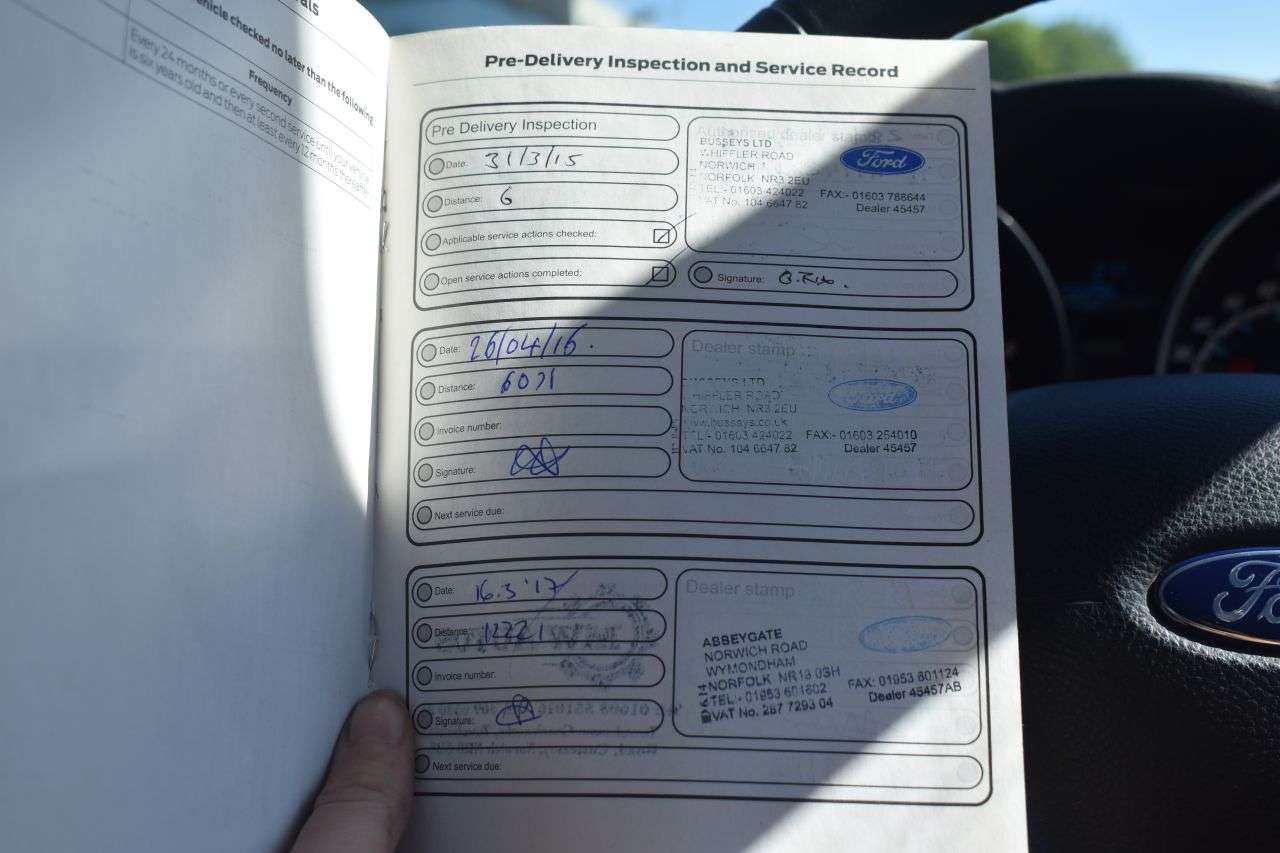 als
vehicle checked no later than the following
Frequency
Every 24 months or every second service until your vehicle
is six years old and then at least every 12 months thereafter
Pre-Delivery Inspection and Service Record
Pre Delivery Inspection
Date: 31/3/15
Distance: 6
Applicable service actions checked:
Open service actions completed:
Authorised dealer stamp:
BUSSEYS LTD
WHIFFLER ROAD
NORWICH
NORFOLK NR3 2EU
TEL:- 01603 424022 FAX:- 01603 788644
VAT No. 104 6647 82 Dealer 45457
Ford
Signature:
Date: 26/04/16.
Distance: 6071
Invoice number:
Signature:
Next service due:
Dealer stamp
BUSSEYS LTD
WHIFFLER ROAD
NORWICH NR3 2EU
www.busseys.co.uk
TEL:- 01603 424022 FAX:- 01603 254010
VAT No. 104 6647 82 Dealer 45457
Ford
Date: 16.3.'17
Distance: 12221
Invoice number:
Signature:
Next service due:
Dealer stamp
ABBEYGATE
NORWICH ROAD
WYMONDHAM
NORFOLK NR18 0SH
TEL:- 01953 601602 FAX: 01953 601124
VAT No. 287 7293 04 Dealer 45457AB
Fo